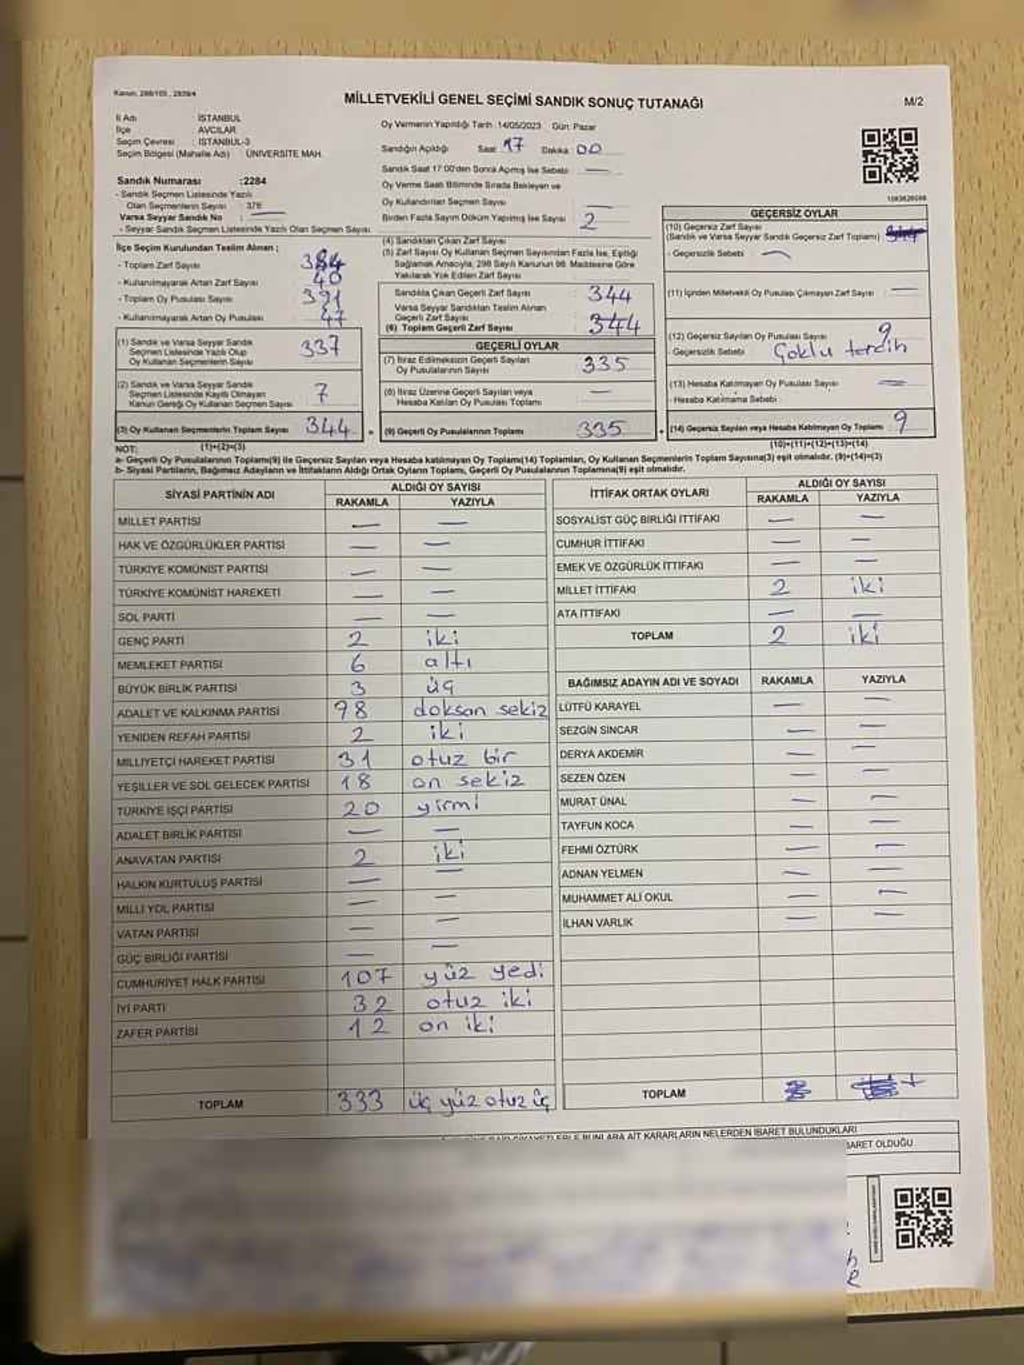 Kanun: 298/105, 2839/4
MİLLETVEKİLİ GENEL SEÇİMİ SANDIK SONUÇ TUTANAĞI
M/2
İl Adı : İSTANBUL
İlçe : AVCILAR
Seçim Çevresi : İSTANBUL-3
Seçim Bölgesi (Mahalle Adı) : ÜNİVERSİTE MAH.
Sandık Numarası :2284
- Sandık Seçmen Listesinde Yazılı
Olan Seçmenlerin Sayısı : 376
Varsa Seyyar Sandık No : —
- Seyyar Sandık Seçmen Listesinde Yazılı Olan Seçmen Sayısı :
İlçe Seçim Kurulundan Teslim Alınan ;
- Toplam Zarf Sayısı : 384
- Kullanılmayarak Artan Zarf Sayısı : 40
- Toplam Oy Pusulası Sayısı : 391
- Kullanılmayarak Artan Oy Pusulası : 47
(1) Sandık ve Varsa Seyyar Sandık
Seçmen Listesinde Yazılı Olup
Oy Kullanan Seçmenlerin Sayısı 337
(2) Sandık ve Varsa Seyyar Sandık
Seçmen Listesinde Kayıtlı Olmayan
Kanun Gereği Oy Kullanan Seçmen Sayısı 7
(3) Oy Kullanan Seçmenlerin Toplam Sayısı 344
Oy Vermenin Yapıldığı Tarih :14/05/2023 Gün: Pazar
Sandığın Açıldığı Saat 17 Dakika : 00
Sandık Saat 17:00'den Sonra Açılmış İse Sebebi : —
Oy Verme Saati Bitiminde Sırada Bekleyen ve
Oy Kullandırılan Seçmen Sayısı —
Birden Fazla Sayım Döküm Yapılmış İse Sayısı 2
(4) Sandıktan Çıkan Zarf Sayısı
(5) Zarf Sayısı Oy Kullanan Seçmen Sayısından Fazla İse, Eşitliği
Sağlamak Amacıyla, 298 Sayılı Kanunun 98. Maddesine Göre
Yakılarak Yok Edilen Zarf Sayısı
Sandıkta Çıkan Geçerli Zarf Sayısı 344
Varsa Seyyar Sandıktan Teslim Alınan
Geçerli Zarf Sayısı —
(6) Toplam Geçerli Zarf Sayısı 344
GEÇERLİ OYLAR
(7) İtiraz Edilmeksizin Geçerli Sayılan
Oy Pusulalarının Sayısı 335
(8) İtiraz Üzerine Geçerli Sayılan veya
Hesaba Katılan Oy Pusulası Toplamı —
= (9) Geçerli Oy Pusulalarının Toplamı 335
GEÇERSİZ OYLAR
(10) Geçersiz Zarf Sayısı
(Sandık ve Varsa Seyyar Sandık Geçersiz Zarf Toplamı)
- Geçersizlik Sebebi : —
(11) İçinden Milletvekili Oy Pusulası Çıkmayan Zarf Sayısı : —
(12) Geçersiz Sayılan Oy Pusulası Sayısı : 9
Geçersizlik Sebebi : Çoklu tercih
(13) Hesaba Katılmayan Oy Pusulası Sayısı : —
- Hesaba Katılmama Sebebi :
+ (14) Geçersiz Sayılan veya Hesaba Katılmayan Oy Toplamı 9
NOT: (1)+(2)=(3)
(10)+(11)+(12)+(13)=(14)
a- Geçerli Oy Pusulalarının Toplamı(9) ile Geçersiz Sayılan veya Hesaba katılmayan Oy Toplamı(14) Toplamları, Oy Kullanan Seçmenlerin Toplam Sayısına(3) eşit olmalıdır. (9)+(14)=(3)
b- Siyasi Partilerin, Bağımsız Adayların ve İttifakların Aldığı Ortak Oyların Toplamı, Geçerli Oy Pusulalarının Toplamına(9) eşit olmalıdır.
SİYASİ PARTİNİN ADI ALDIĞI OY SAYISI
RAKAMLA YAZIYLA
MİLLET PARTİSİ — —
HAK VE ÖZGÜRLÜKLER PARTİSİ — —
TÜRKİYE KOMÜNİST PARTİSİ — —
TÜRKİYE KOMÜNİST HAREKETİ — —
SOL PARTİ — —
GENÇ PARTİ 2 iki
MEMLEKET PARTİSİ 6 altı
BÜYÜK BİRLİK PARTİSİ 3 üç
ADALET VE KALKINMA PARTİSİ 98 doksan sekiz
YENİDEN REFAH PARTİSİ 2 iki
MİLLİYETÇİ HAREKET PARTİSİ 31 otuz bir
YEŞİLLER VE SOL GELECEK PARTİSİ 18 on sekiz
TÜRKİYE İŞÇİ PARTİSİ 20 yirmi
ADALET BİRLİK PARTİSİ — —
ANAVATAN PARTİSİ 2 iki
HALKIN KURTULUŞ PARTİSİ — —
MİLLİ YOL PARTİSİ — —
VATAN PARTİSİ — —
GÜÇ BİRLİĞİ PARTİSİ — —
CUMHURİYET HALK PARTİSİ 107 yüz yedi
İYİ PARTİ 32 otuz iki
ZAFER PARTİSİ 12 on iki
TOPLAM 333 üç yüz otuz üç
İTTİFAK ORTAK OYLARI ALDIĞI OY SAYISI
RAKAMLA YAZIYLA
SOSYALİST GÜÇ BİRLİĞİ İTTİFAKI — —
CUMHUR İTTİFAKI — —
EMEK VE ÖZGÜRLÜK İTTİFAKI — —
MİLLET İTTİFAKI 2 iki
ATA İTTİFAKI — —
TOPLAM 2 iki
BAĞIMSIZ ADAYIN ADI VE SOYADI RAKAMLA YAZIYLA
LÜTFÜ KARAYEL — —
SEZGİN SİNCAR — —
DERYA AKDEMİR — —
SEZEN ÖZEN — —
MURAT ÜNAL — —
TAYFUN KOCA — —
FEHMİ ÖZTÜRK — —
ADNAN YELMEN — —
MUHAMMET ALİ OKUL — —
İLHAN VARLIK — —
TOPLAM
BUNLARA AİT KARARLARIN NELERDEN İBARET BULUNDUKLARI
OLDUĞU